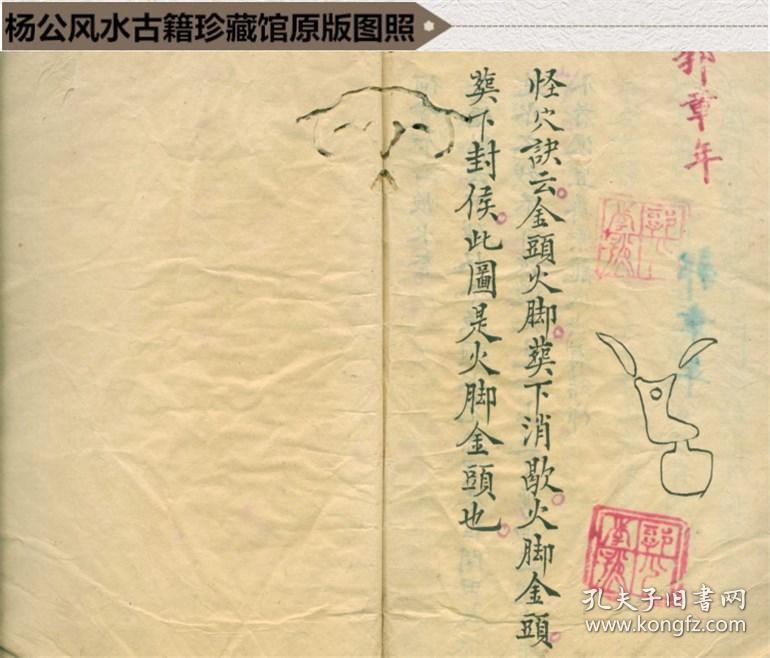 杨公风水古籍珍藏馆原版图照
郭章年
怪穴訣云金頭火脚葬下消歇火脚金頭
葬下封侯此圖是火脚金頭也
孔夫子旧书网
www.kongfz.com